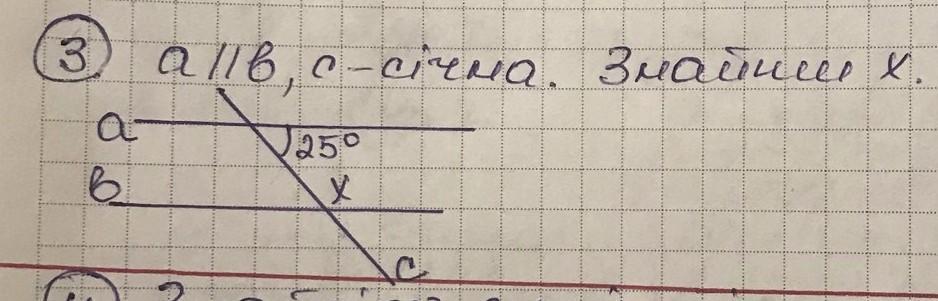 3 a||b, c-січна. Знайти x.
a
25°
b
x
c